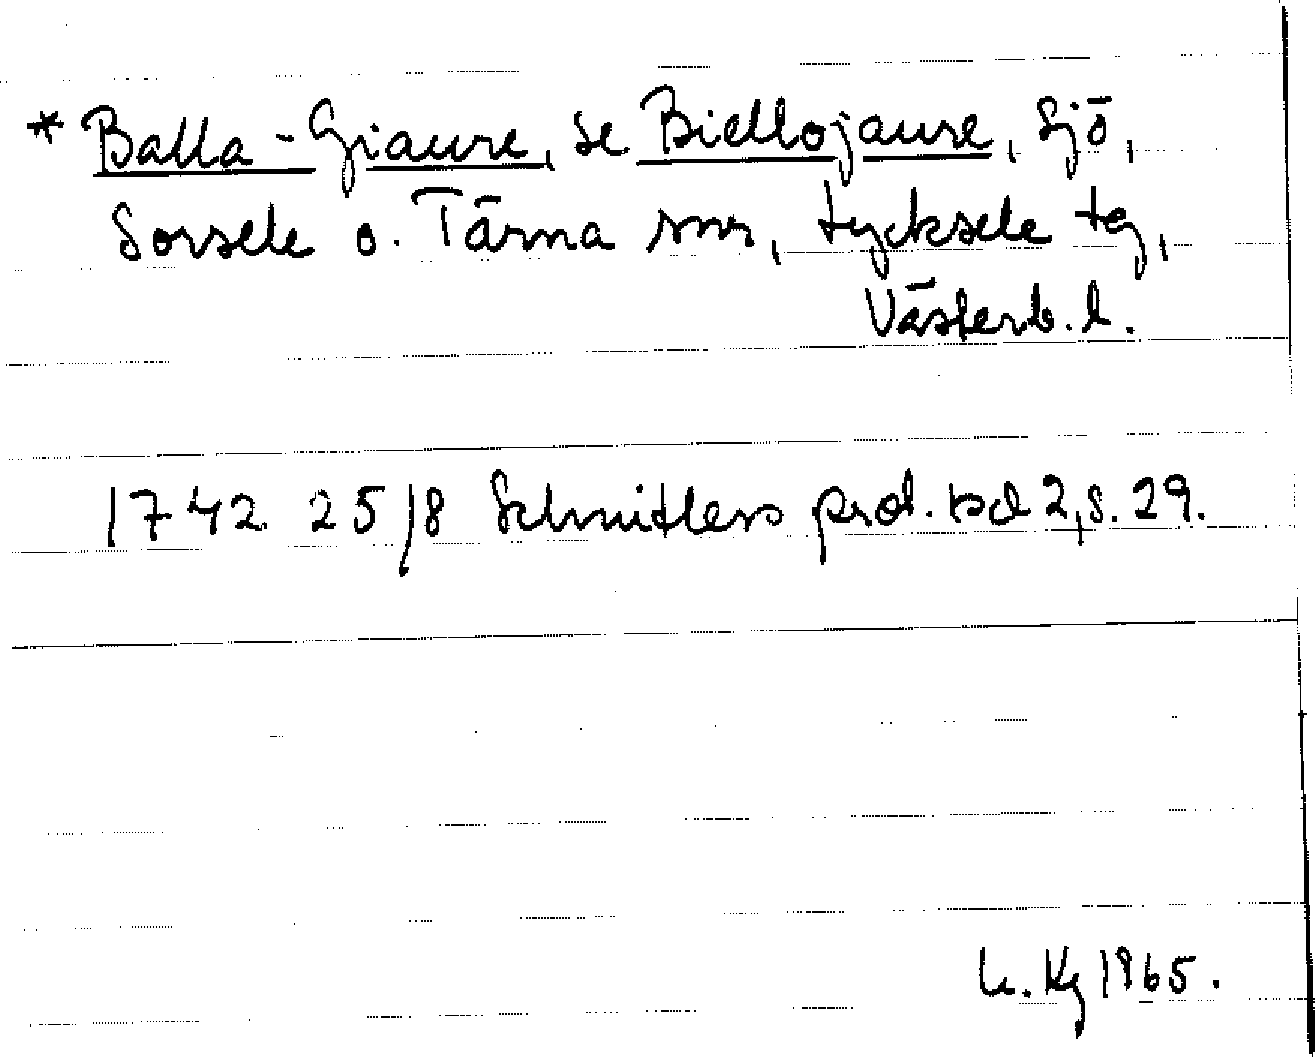 * Balla-Giaure, se Biellojaure, sjö,
Sorsele o. Tärna snr, Lycksele tg,
Västerb. l.
1742 25/8 Schnitlers prot. bd 2, s. 29.
1965.